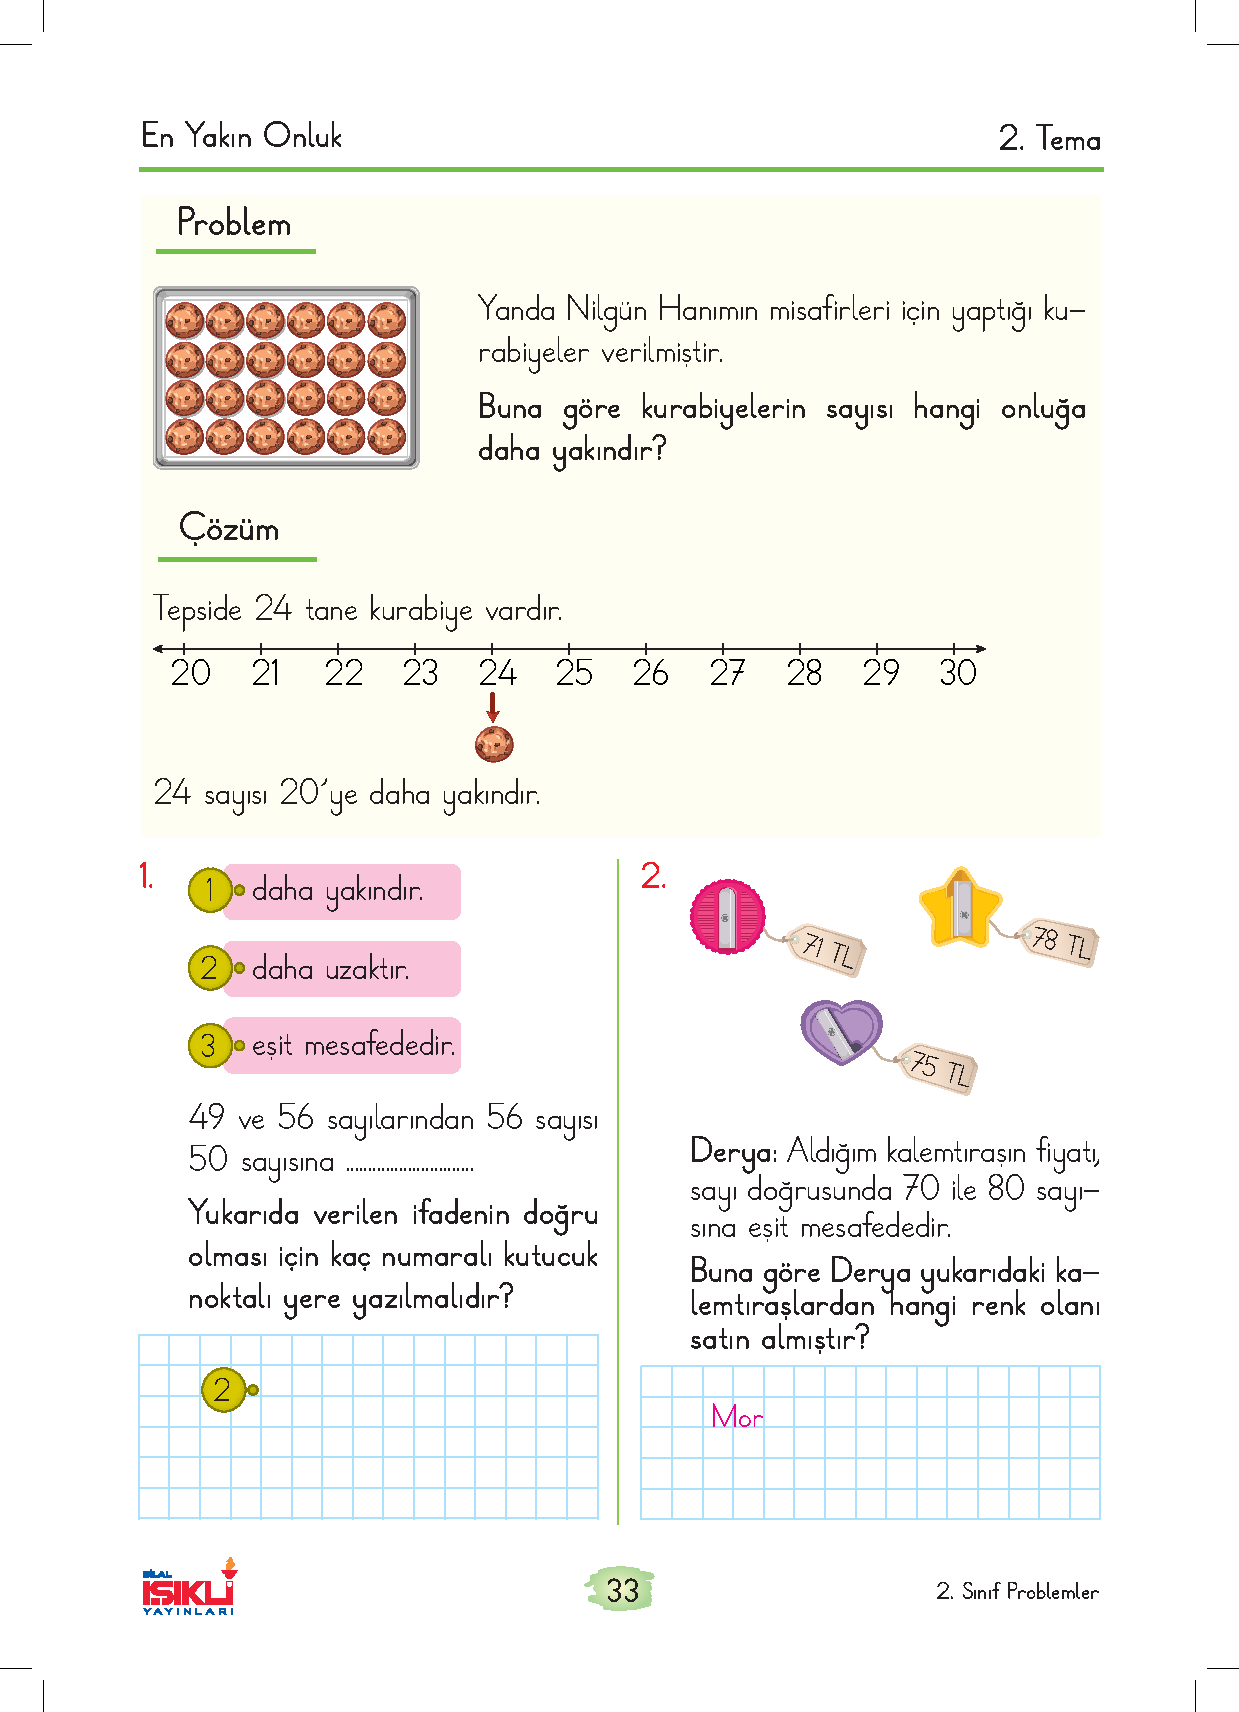 En Yakın Onluk
2. Tema
Problem
Yanda Nilgün Hanımın misafirleri için yaptığı ku-
rabiyeler verilmiştir.
Buna göre kurabiyelerin sayısı hangi onluğa
daha yakındır?
Çözüm
Tepside 24 tane kurabiye vardır.
20 21 22 23 24 25 26 27 28 29 30
24 sayısı 20'ye daha yakındır.
1.
1 daha yakındır.
2 daha uzaktır.
3 eşit mesafededir.
49 ve 56 sayılarından 56 sayısı
50 sayısına .............................
Yukarıda verilen ifadenin doğru
olması için kaç numaralı kutucuk
noktalı yere yazılmalıdır?
2
2.
71 TL
78 TL
75 TL
Derya: Aldığım kalemtıraşın fiyatı,
sayı doğrusunda 70 ile 80 sayı-
sına eşit mesafededir.
Buna göre Derya yukarıdaki ka-
lemtıraşlardan hangi renk olanı
satın almıştır?
Mor
BİLAL
IŞIKLI
YAYINLARI
33
2. Sınıf Problemler